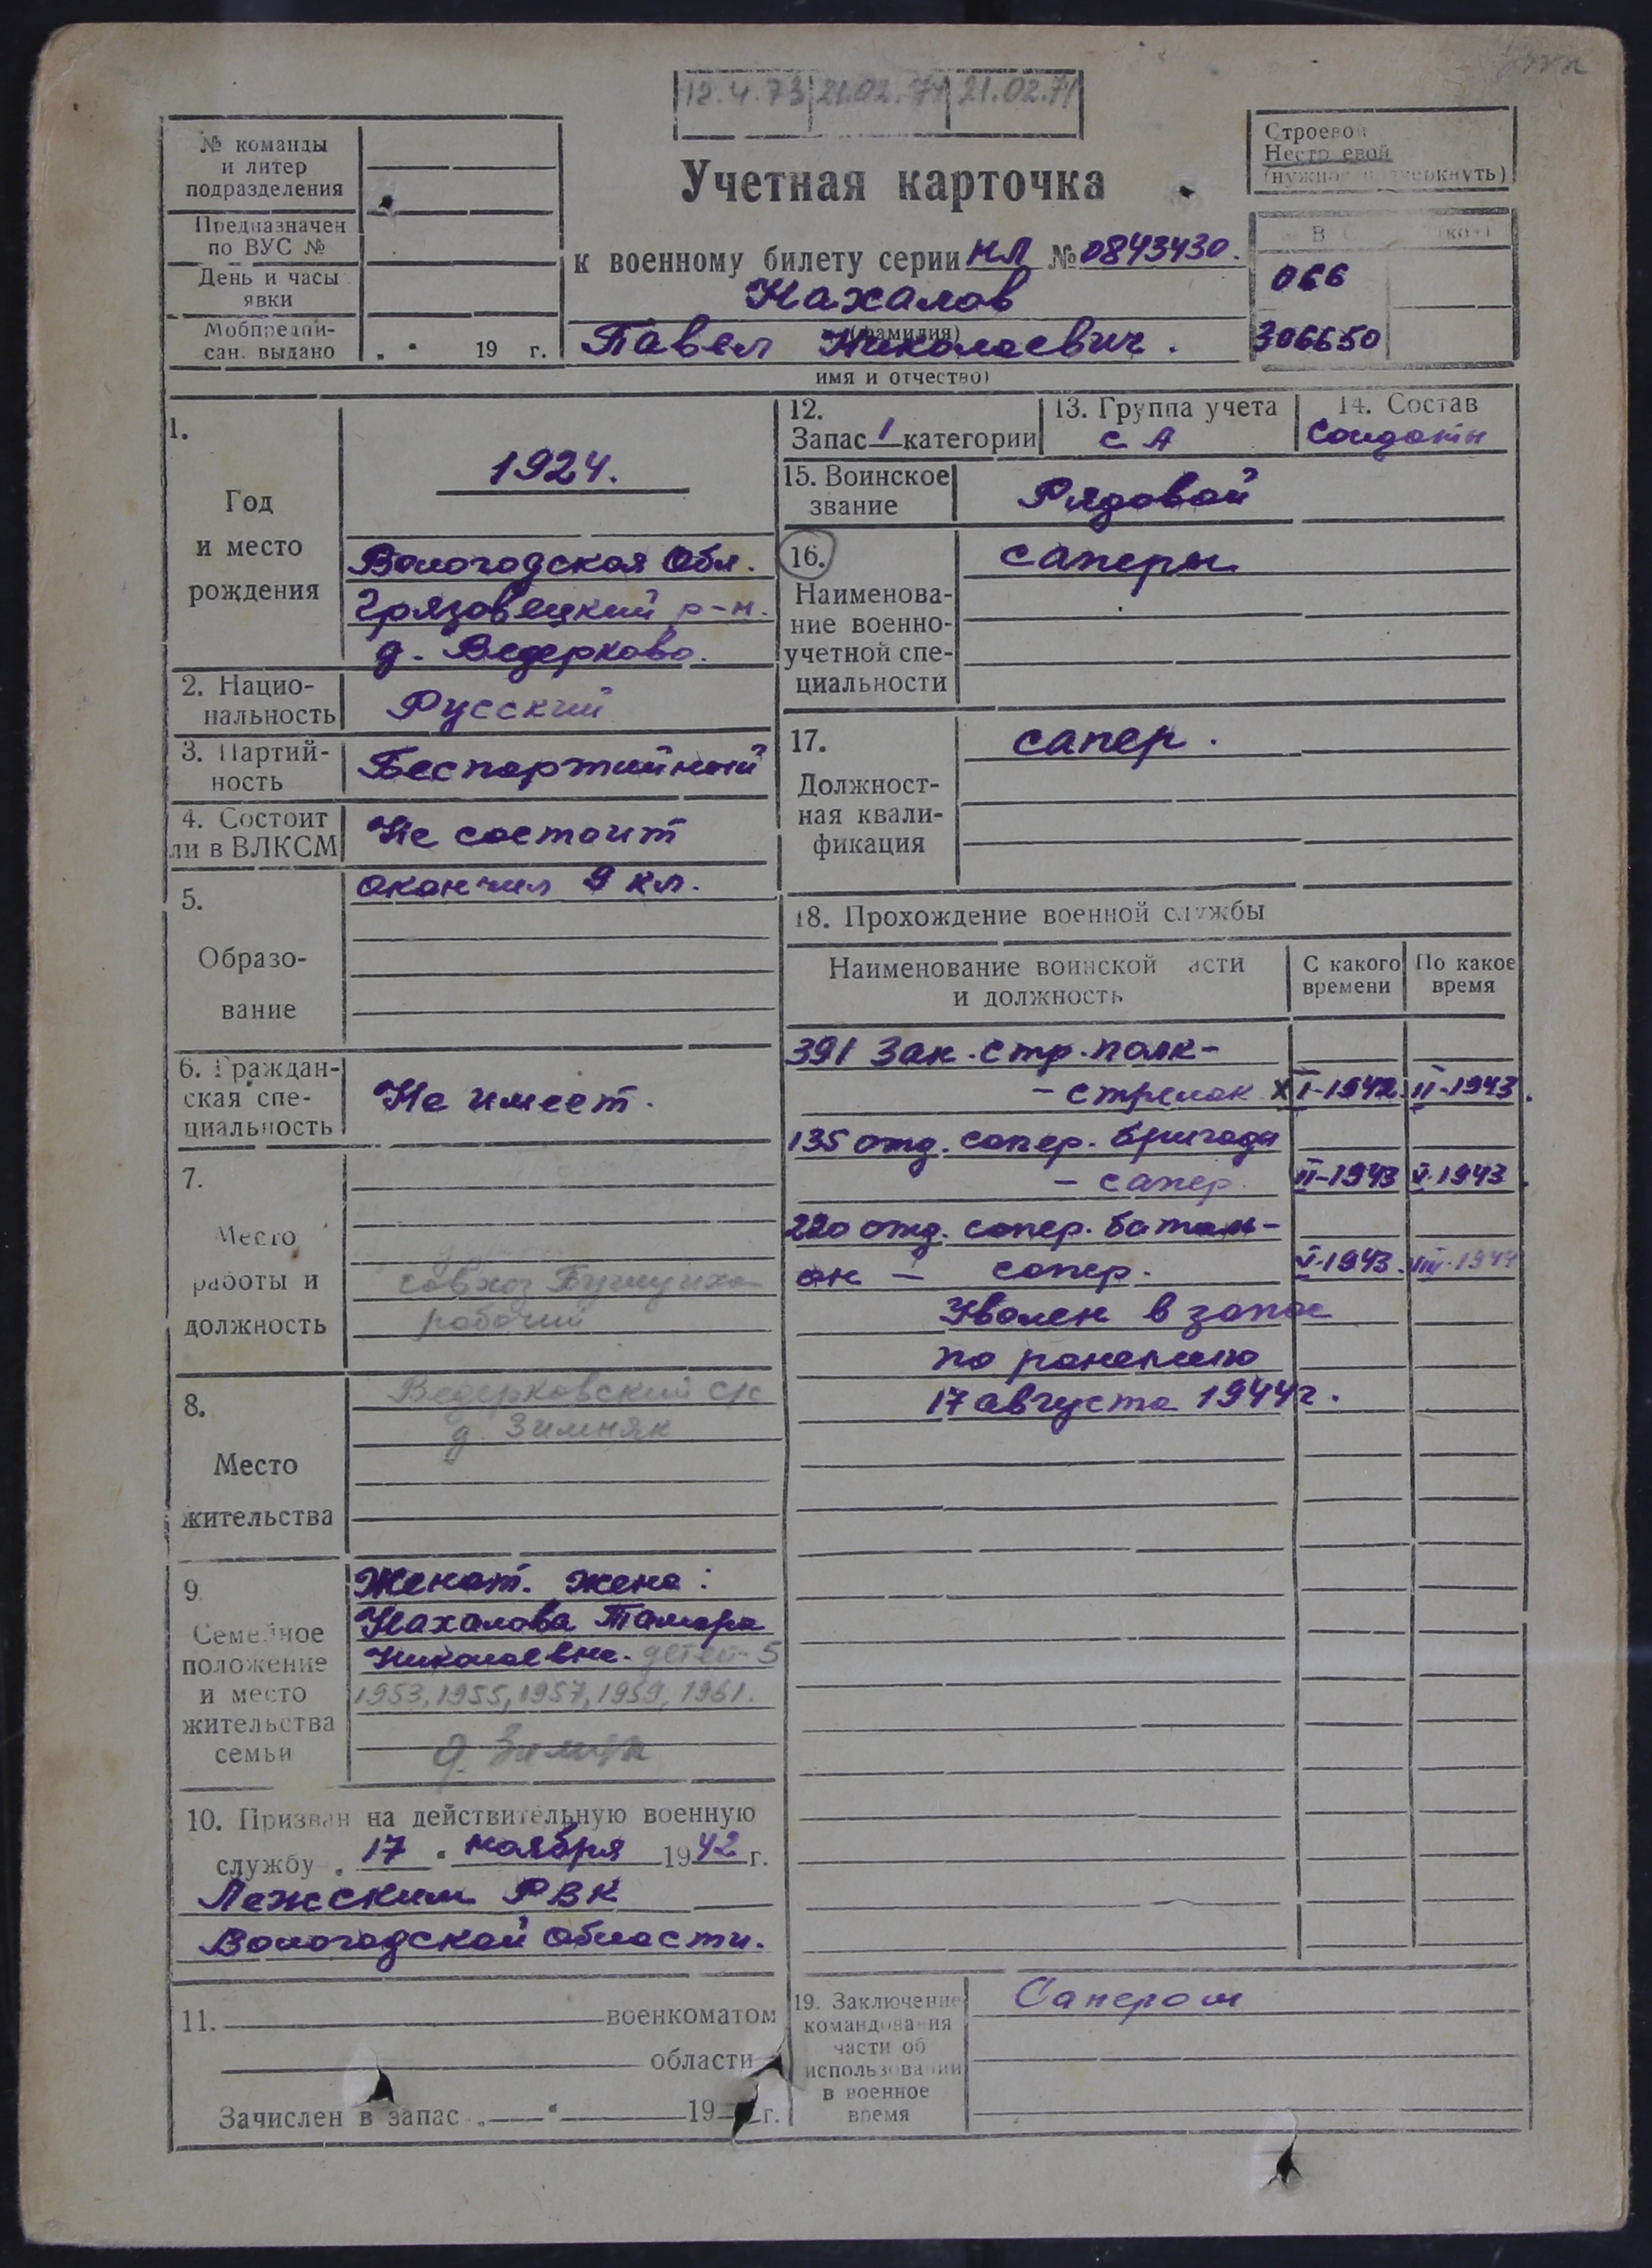 12.4.73 21.02.74 21.02.71
№ команды
и литер
подразделения
Предназначен
по ВУС №
День и часы
явки
Мобпредпи-
сан. выдано „ " 19 г.
Учетная карточка
к военному билету серии НЛ № 0843430.
Нахалов
(фамилия)
Павел Николаевич.
имя и отчество)
Строевой
Нестроевой
(нужное подчеркнуть)
066
306650
1.
Год
и место
рождения
1924.
Вологодская Обл.
Грязовецкий р-н.
д. Ведерково.
2. Нацио-
нальность
Русский
3. Партий-
ность
Беспартийный
4. Состоит
ли в ВЛКСМ
Не состоит
5.
Образо-
вание
окончил 9 кл.
6. Граждан-
ская спе-
циальность
Не имеет.
7.
Место
работы и
должность
совхоз
рабочий
8.
Место
жительства
Ведерковский с/с
д. Зимняк
9.
Семейное
положение
и место
жительства
семьи
Женат. жена:
Нахалова Тамара
Николаевна. детей-5
1953, 1955, 1957, 1959, 1961.
д. Зимняк
10. Призван на действительную военную
службу „ 17 " ноября 1942 г.
Лежским РВК
Вологодской области.
11. военкоматом
области
Зачислен в запас „ " 19 г.
12.
Запас 1 категории
13. Группа учета
СА
14. Состав
Солдаты
15. Воинское
звание
Рядовой
16.
Наименова-
ние военно-
учетной спе-
циальности
саперы
17.
Должност-
ная квали-
фикация
сапер.
18. Прохождение военной службы
Наименование воинской части
и должность
С какого
времени
По какое
время
391 Зап. стр. полк-
- стрелок XI-1942 II-1943.
135 отд. сапер. бригада
- сапер. II-1943 V-1943.
220 отд. сапер. баталь-
он - сапер. V-1943. VIII-1944
Уволен в запас
по ранению
17 августа 1944 г.
19. Заключение
командования
части об
использовании
в военное
время
Сапером